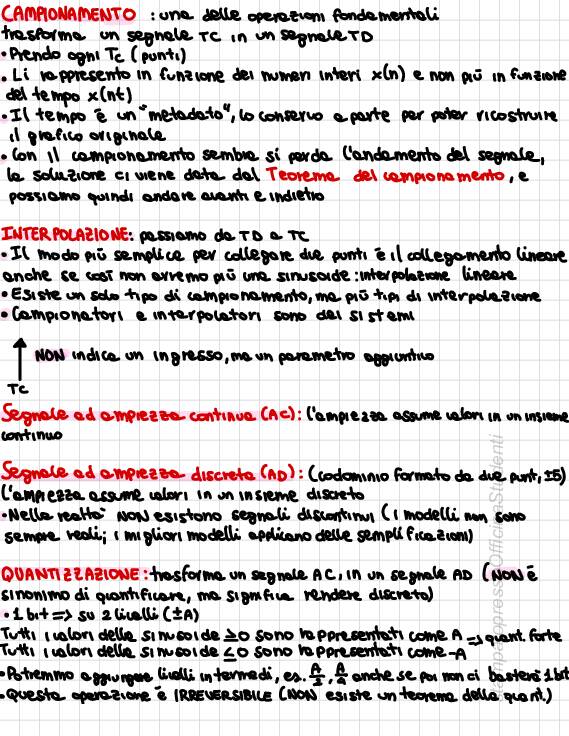 CAMPIONAMENTO : una delle operazioni fondamentali
trasforma un segnale TC in un segnale TD
• Prendo ogni Tc (punti)
• Li rappresento in funzione dei numeri interi x(n) e non più in funzione
del tempo x(nt)
• Il tempo è un "metadato", lo conservo a parte per poter ricostruire
il grafico originale
• Con il campionamento sembra si perda l'andamento del segnale,
la soluzione ci viene data dal Teorema del campionamento, e
possiamo quindi andare avanti e indietro
INTERPOLAZIONE: passiamo da TD a TC
• Il modo più semplice per collegare due punti è il collegamento lineare
anche se così non avremo più una sinusoide: interpolazione lineare
• Esiste un solo tipo di campionamento, ma più tipi di interpolazione
• Campionatori e interpolatori sono dei sistemi
↑ NON indica un ingresso, ma un parametro aggiuntivo
TC
Segnale ad ampiezza continua (AC): l'ampiezza assume valori in un insieme
continuo
Segnale ad ampiezza discreta (AD): (codominio formato da due punti, ±5)
l'ampiezza assume valori in un insieme discreto
• Nella realtà NON esistono segnali discontinui (i modelli non sono
sempre reali; i migliori modelli applicano delle semplificazioni)
QUANTIZZAZIONE: trasforma un segnale AC, in un segnale AD (NON è
sinonimo di quantificare, ma significa rendere discreto)
• 1 bit => su 2 livelli (±A)
Tutti i valori della sinusoide ≥0 sono rappresentati come A => quant. forte
Tutti i valori della sinusoide ≤0 sono rappresentati come -A
• Potremmo aggiungere livelli intermedi, es. A/2, A/4 anche se poi non ci basterà 1 bit
• Questa operazione è IRREVERSIBILE (NON esiste un teorema della quant.)